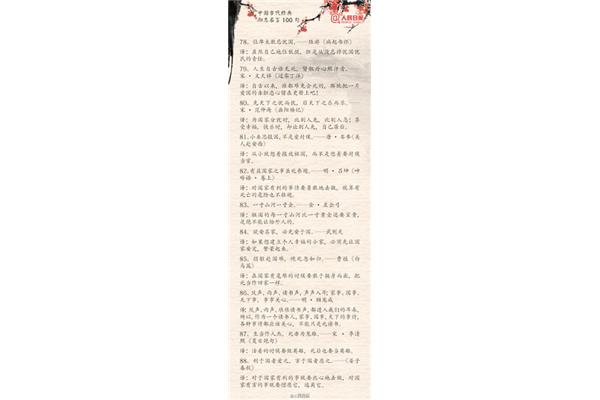 中国古代经典
励志名言100句
@人民日报
78、位卑未敢忘忧国。——陆游《病起书怀》
译：虽然自己地位低微，但是从没忘掉忧国忧
民的责任。
79、人生自古谁无死，留取丹心照汗青。——
宋·文天祥《过零丁洋》
译：自古以来，谁都难免会死的，那就把一片
爱国的赤胆忠心留在史册上吧！
80、先天下之忧而忧，后天下之乐而乐。——
宋·范仲淹《岳阳楼记》
译：为国家分忧时，比别人先，比别人急；享
受幸福，快乐时，却让别人先，自己居后。
81、小来思报国，不是爱封侯。——唐·岑参《送
人赴安西》
译：从小就想着报效祖国，而不是想着要封侯
当官。
82、有益国家之事虽死弗避。——明·吕坤《呻
吟语·卷上》
译：对国家有利的事情要勇敢地去做，就算有
死亡的危险也不躲避。
83、一寸山河一寸金。——金·左企弓
译：祖国的每一寸山河比一寸黄金还要宝贵，
是绝不能让给外人的。
84、欲安其家，必先安于国。——武则天
译：如果想建立个人幸福的小家，必须先让国
家安定，繁荣起来。
85、捐躯赴国难，视死忽如归。——曹植《白
马篇》
译：在国家有危难的时候要敢于挺身而出，把
死当作回家一样。
86、风声、雨声、读书声，声声入耳；家事、国事、
天下事，事事关心。——明·顾宪成
译：风声、雨声、琅琅读书声，都进入我们的耳朵，
所以，作为一个读书人，家事、国事，天下的事情，
各种事情都应该关心，不能只是死读书。
87、生当作人杰，死亦为鬼雄。——宋·李清
照《夏日绝句》
译：活着的时候要做英雄，死后也要当英雄。
88、利于国者爱之，害于国者恶之。——《晏子
春秋》
译：对于国家有利的事就要热心地去做，对国
家有害的事就要憎恶它，远离它。
@人民日报